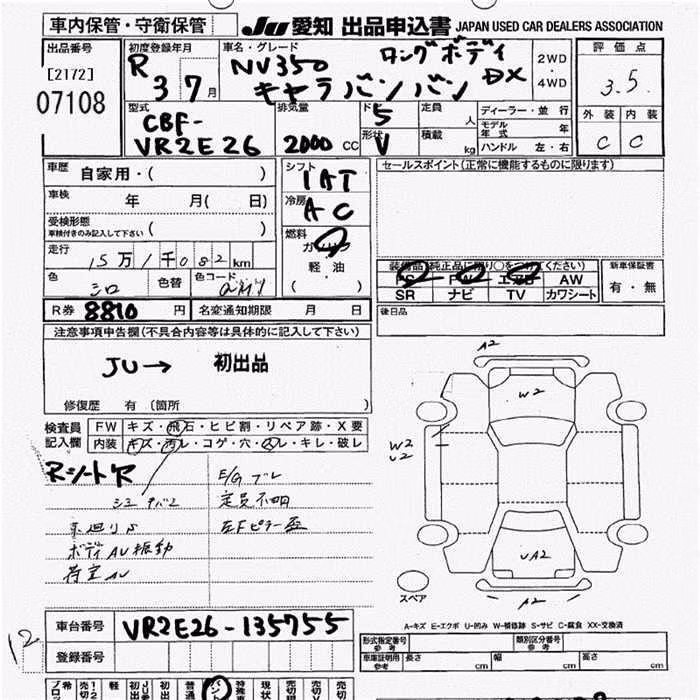 車内保管・守衛保管
JU 愛知 出品申込書 JAPAN USED CAR DEALERS ASSOCIATION
出品番号
[2172]
07108
初度登録年月
R 3 7月
車名・グレード
NV350 ロングボディ
キャラバンバン DX
2WD
・
4WD
評価点
3.5
外装 内装
C C
型式
CBF-
VR2E26
排気量
2000 CC
ド 5
形状 V
定員 人
積載 kg
ディーラー・並行
モデル年式 年
ハンドル 左・右
車歴 自家用・( )
車検 年 月( 日)
受検形態
車検付きのみ記入して下さい ( )
走行 15万1千082km
色 シロ 色替 色コード
シフト
IAT
冷房
AC
燃料
ガソリン
軽油
( )
セールスポイント(正常に機能するものに限ります)
装備品(純正品に限り○をつけてください)
PS PW エアB AW
SR ナビ TV カワシート
新車保証書
有・無
後日品
R券 8810円 名変通知期限 月 日
注意事項申告欄(不具合内容等は具体的に記入して下さい)
JU→ 初出品
修復歴 有 〔箇所 〕
検査員
記入欄
FW キズ・飛石・ヒビ割・リペア跡・X要
内装 キズ・汚レ・コゲ・穴・スレ・キレ・破レ
E/G ブレ
定員不明
ボディAU振動
荷室AU
A2
W2
W2
U2
UA2
A2
スペア
A-キズ E-エクボ U-凹み W-補修跡 S-サビ C-腐食 XX-交換済
車台番号 VR2E26-135755
登録番号
12
形式指定番号
参考
類別区分番号
参考
車庫証明用
参考
長さ cm 幅 cm 高さ cm